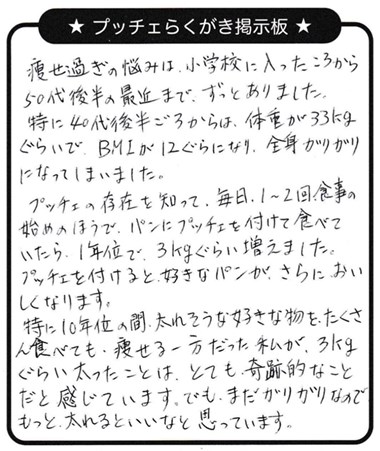 ★ プッチェらくがき掲示板 ★
痩せ過ぎの悩みは、小学校に入ったころから
50代後半の最近まで、ずっとありました。
特に40代後半ごろからは、体重が33kg
ぐらいで、BMIが12ぐらいになり、全身ガリガリ
になってしまいました。
プッチェの存在を知って、毎日、1〜2回、食事の
始めのほうで、パンにプッチェを付けて食べて
いたら、1年位で、3kgぐらい増えました。
プッチェを付けると、好きなパンが、さらに、おい
しくなります。
特に10年位の間、太れそうな好きな物を、たくさ
ん食べても、痩せる一方だった私が、3kg
ぐらい太ったことは、とても、奇跡的なこと
だと感じています。でも、まだガリガリなので、
もっと、太れるといいなと思っています。